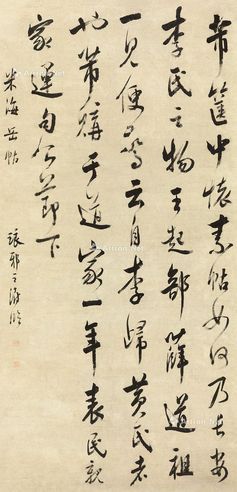 帋篋中懷素帖如何乃長安
李氏之物王起部薛道祖
一見便驚云自李歸黃氏者
也帶購于道家一年表民親
家運句公節下
米海岳帖
琅邪王澍臨